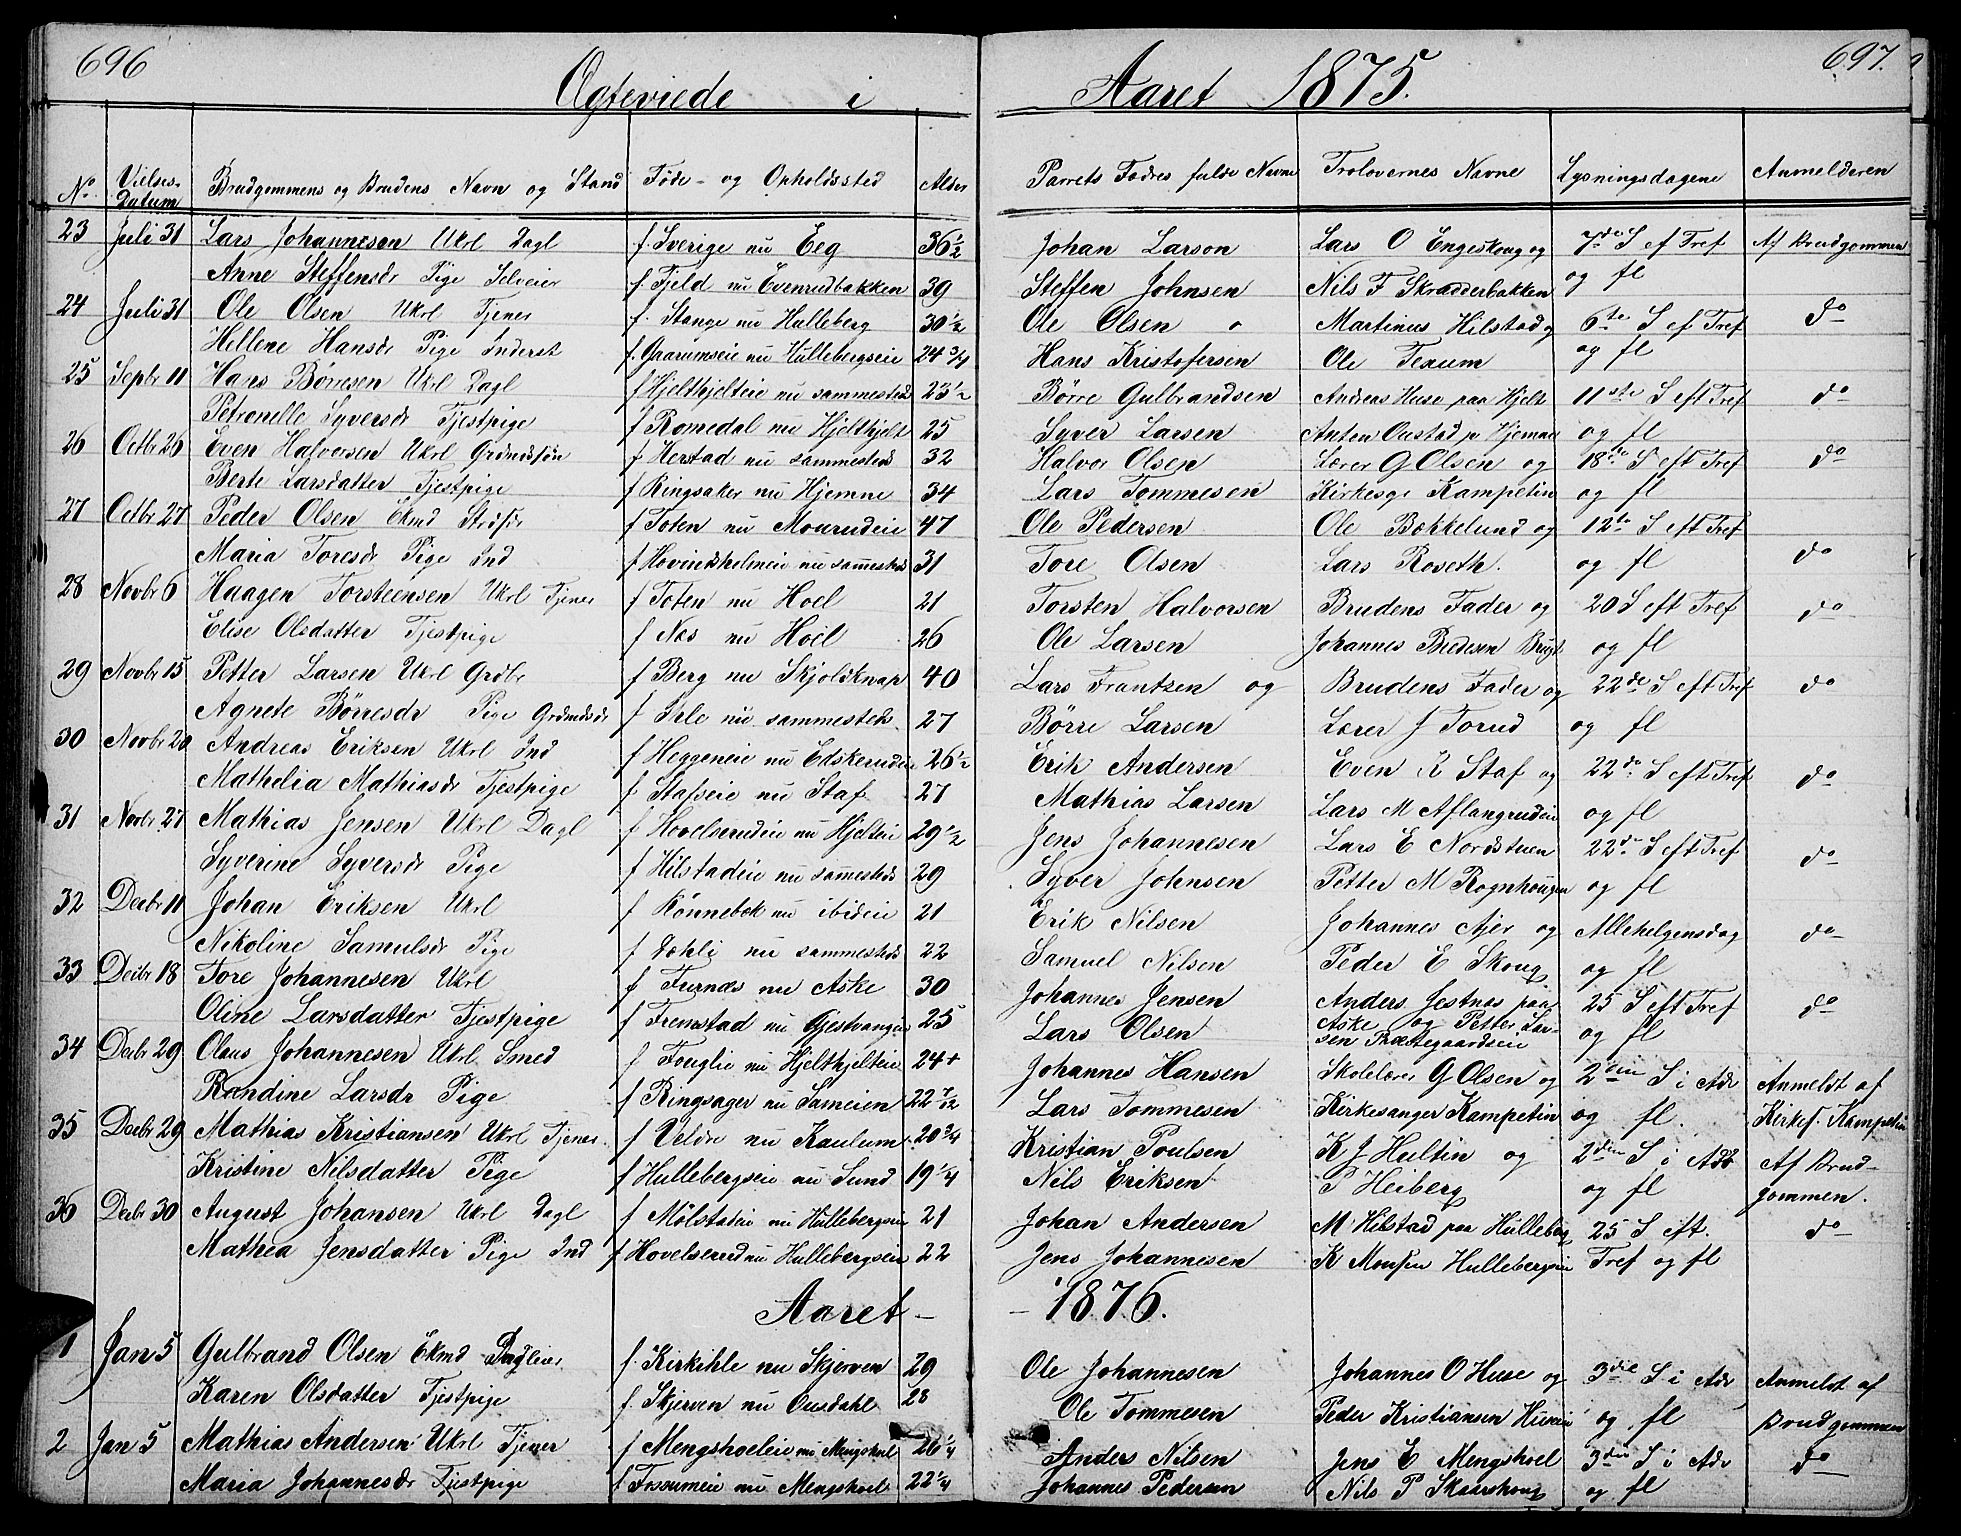 696
697.
Ægteviede i Aaret 1875.
No Vielses-Datum Brudgommens og Brudens Navn og Stand Føde- og Opholdssted Alder Parrets Fædres fulde Navne Trolovernes Navne Lysningsdagene Anmelderen
23 Juli 31 Lars Johannesen Ukrl Dagl f. Sverige nu Eeg 36 1/2 Johan Larson Lars O Engeskoug og 7de S ef Tref Af Brudgommen
Anne Steffensdr Pige Selveier f. Tjeld nu Evenrudbakken 39 Steffen Johnsen Nils F Skrædderbakken og fl
24 Juli 31 Ole Olsen Ukrl Tjener f. Stange nu Hulleberg 30 1/2 Ole Olsen Martinus Hilstad og 6te S ef Tref do
Hellene Hansdr Pige Inderst f. Gaarumseie nu Hullebergseie 24 3/4 Hans Kristofersen Ole Texum og fl
25 Sepbr 11 Hans Børresen Ukrl Dagl f Hjelthjelteie nu sammesteds 23 1/2 Børre Gulbrandsen Andreas Huse paa Hjelt 11ste S eft Tref do
Petronelle Syversdr Tjestpige f Romedal nu Hjelthjelt 25 Syver Larsen Anton Oustad p Hjemne og fl
26 Octbr 26 Even Halvorsen Ukrl Grdmdsøn f Herstad nu sammesteds 32 Halvor Olsen Lærer G Olsen og 18de S eft Tref do
Berte Larsdatter Tjestpige f Ringsaker nu Hjemne 34 Lars Tommesen Kirkesgr Kampetin og fl
27 Octbr 27 Peder Olsen Ekmd f Toten nu Mourudeie 47 Ole Pedersen Ole Bækkelund og 12te S eft Tref
Maria Toresdr Pige Ind f Hovindsholmeie nu sammesteds 31 Tore Olsen Lars Roseth. og fl do
28 Novbr 6 Haagen Torsteensen Ukrl Tjener f Toten nu Hoel 21 Torsten Halvorsen Brudens Fader og 20 S eft Tref do
Elise Olsdatter Tjestpige f Næs nu Hoel 26 Ole Larsen Johannes Bredesen og fl
29 Novbr 15 Petter Larsen Ukrl Grdbr f Berg nu Skjolsknap 40 Lars Frantzen og Brudens Fader og 22de S eft Tref do
Agnete Børresdr Pige Grdmdsdr f Sele nu sammesteds 27 Børre Larsen Lærer J Torud og fl
30 Novbr 20 Andreas Eriksen Ukrl Ind f Heggeneie nu Edskerudeie 26 1/2 Erik Andersen Even K Staf og 22de S eft Tref do
Mathelia Mathiasdr Tjestpige f. Stafseie nu Staf 27 Mathias Larsen Lars M Aflangrudeie og fl
31 Novbr 27 Mathias Jensen Ukrl Dagl f Hovelsrudeie nu Hjelteie 29 1/2 Jens Johannesen Lars E Nordstuen 22de S eft Tref do
Syverine Syversdr Pige f Hilstadeie nu sammesteds 29 Syver Johnsen Petter M Rognhougen og fl
32 Decbr 11 Johan Eriksen Ukrl f Kønnebek nu ibideie 21 Erik Nilsen Johannes Ajer og Allehelgensdag do
Nikoline Samulsdr Pige f Dæhli nu sammesteds 22 Samuel Nilsen Peder E Skoug og fl
33 Decbr 18 Tore Johannesen Ukrl f Furnæs nu Aske 30 Johannes Jensen Anders Jestnæs paa 25 S eft Tref do
Oline Larsdatter Tjestpige f Fremstad nu Gjestvangeie 25 Lars Olsen Aske og Petter Larsen Præstegaardseie og fl
34 Decbr 29 Olaus Johannesen Ukrl Smed f Fouglie nu Hjelthjelteie 24+ Johannes Hansen Skolelærer G Olsen og 2den S i Adv Anmeldt af
Randine Larsdr Pige f Ringsager nu Sameien 22 7/12 Lars Tommesen Kirkesanger Kampetin og fl. Kirkes. Kampetin
35 Decbr 29 Mathias Kristiansen Ukrl Tjener f Veldre nu Kaulum 20 3/4 Kristian Poulsen K J Hultin og 2den S i Adv Af Brud-
Kristine Nilsdatter Pige f Hullebergseie nu Sund 19 1/4 Nils Eriksen P Heiberg og fl gommen.
36 Decbr 30 August Johansen Ukrl Dagl f Mølstadeie nu Hullebergseie 21 Johan Andersen M Hilstad paa Hulleberg 25 S eft. do
Mathea Jensdatter Pige Ind f Hovelsrud nu Hullebergseie 22 Jens Johannesen K Monsen Hullebergseie Tref og fl
Aaret - 1876.
1 Jan 5 Gulbrand Olsen Ekmd Dagleier f. Kirkihle nu Skjerven 29 Ole Johannesen Johannes O Huse og 3die S i Adv Anmeldt af
Karen Olsdatter Tjestpige f. Skjerven nu Ousdahl 28 Ole Tommesen Peder Kristiansen Huseie og fl Brudgommen
2 Jan 5 Mathias Andersen Ukrl Tjener f Mengshoeleie nu Mengshoel 26 1/4 Anders Nilsen Jens E Mengshoel 3die S i Adv do
Maria Johannesdr Tjestpige f Fossumeie nu Mengshoel 22 1/4 Johannes Pedersen Nils P Skaarshoug og fl